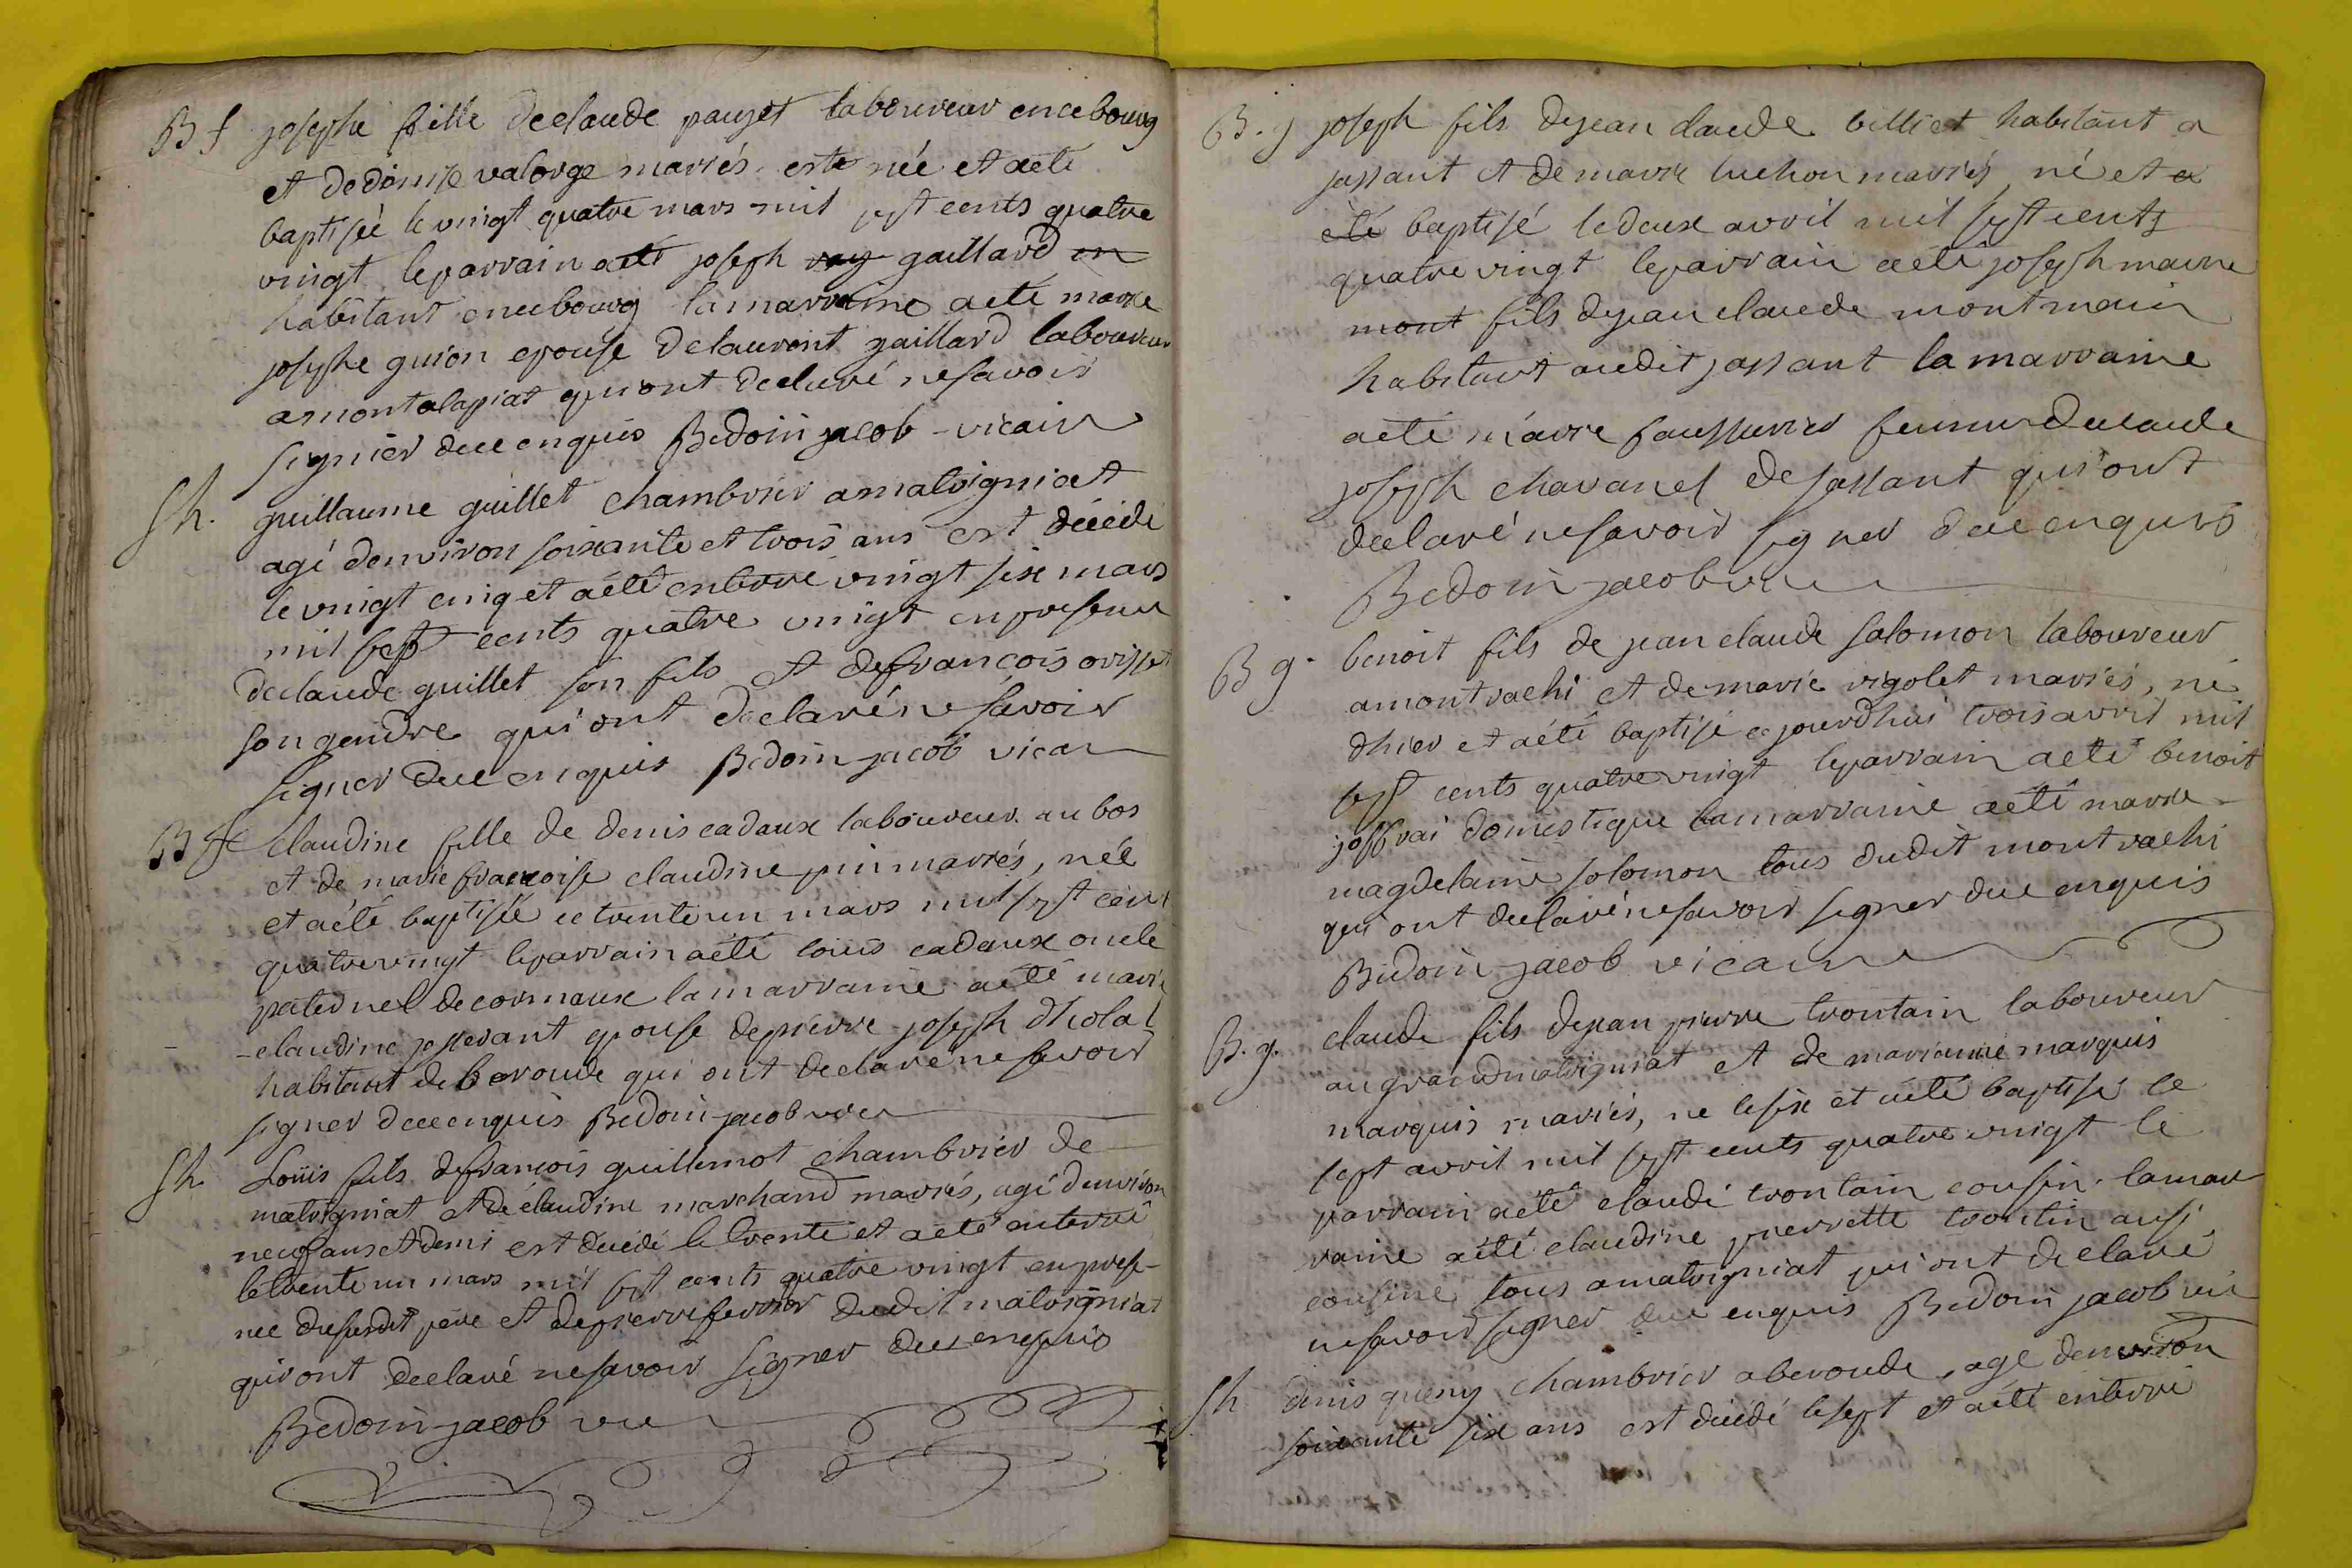 B f josephe fille declaude pauget laboureur encebourg
et dedenise valorge mariés este née et aété
baptisée le vingt quatre mars mil sept cents quatre
vingt leparrain aété joseph gaillard
habitant encebourg lamarraine aété marie
josephe guion epouse delaurent gaillard laboureur
amontalapiat quiont declaré nesavoir
signer dece enquis Bedoin jacob vicaire
Sh. guillaume guillet chambrier amalvigniat
agé denviron soixante et trois ans est décédé
le vingt cinq et aété enterré vingt six mars
mil sept cents quatre vingt enpresence
declaude guillet son fils et defrançois
songendre qui ont declaré nesavoir
signer dece enquis Bedoin jacob vicai
B f claudine fille de denis cadaux laboureur au bos
et de marie françoise claudine pin mariés, née
et aété baptisée ce trente un mars mil sept cent
quatrevingt leparrain aété louis cadaux oncle
paternel decormoux lamarraine aété marie
claudine josserant epouse depierre joseph
habitant deberoude qui ont declaré nesavoir
signer dece enquis Bedoin jacob vicai
Sh. Louis fils defrançois guillemot chambrier de
malvigniat et de claudine marchand mariés, agé denviron
neuf ans et demi est decedé le trente et aété enterré
letrente un mars mil sept cents quatre vingt en prese-
nce dususdit pere et depierre ferrier dudit malvigniat
quiont declaré nesavoir signer dece enquis
Bedoin jacob vic
B. g joseph fils dejean claude billiet habitant a
jassant et de marie luchon mariés, né et a
été baptisé ledeux avril mil sept cents
quatre vingt leparrain aété joseph
mont fils dejean claude montmain
habitant audit jassant la marraine
aété marie femme declaude
joseph chavanel dejassant qui ont
declaré nesavoir signer dece enquis
Bedoin jacob vic
B g. benoit fils de jean claude salomon laboureur
amontrachi et de marie rigolet mariés, né
dhier et aété baptisé ce jourdhui trois avril mil
sept cents quatre vingt leparrain aété benoit
joffrai domestique lamarraine aété marie
magdelaine solomon tous dudit montrachi
qui ont declaré nesavoir signer dece enquis
Bedoin jacob vicaire
B. g. claude fils dejean pierre trontain laboureur
augrandmalvigniat et de marianne marquis
marquis mariés, né lesix et aété baptisé le
sept avril mil sept cents quatre vingt le
parrain aété claude trontain cousin. lamar
raine aété claudine pierrette trontin aussi
cousine tous amalvigniat qui ont declaré
nesavoir signer dece enquis Bedoin jacob vic
Sh denis queny chambrier aberoude, agé denviron
soixante six ans est décédé lesept et aété enterré